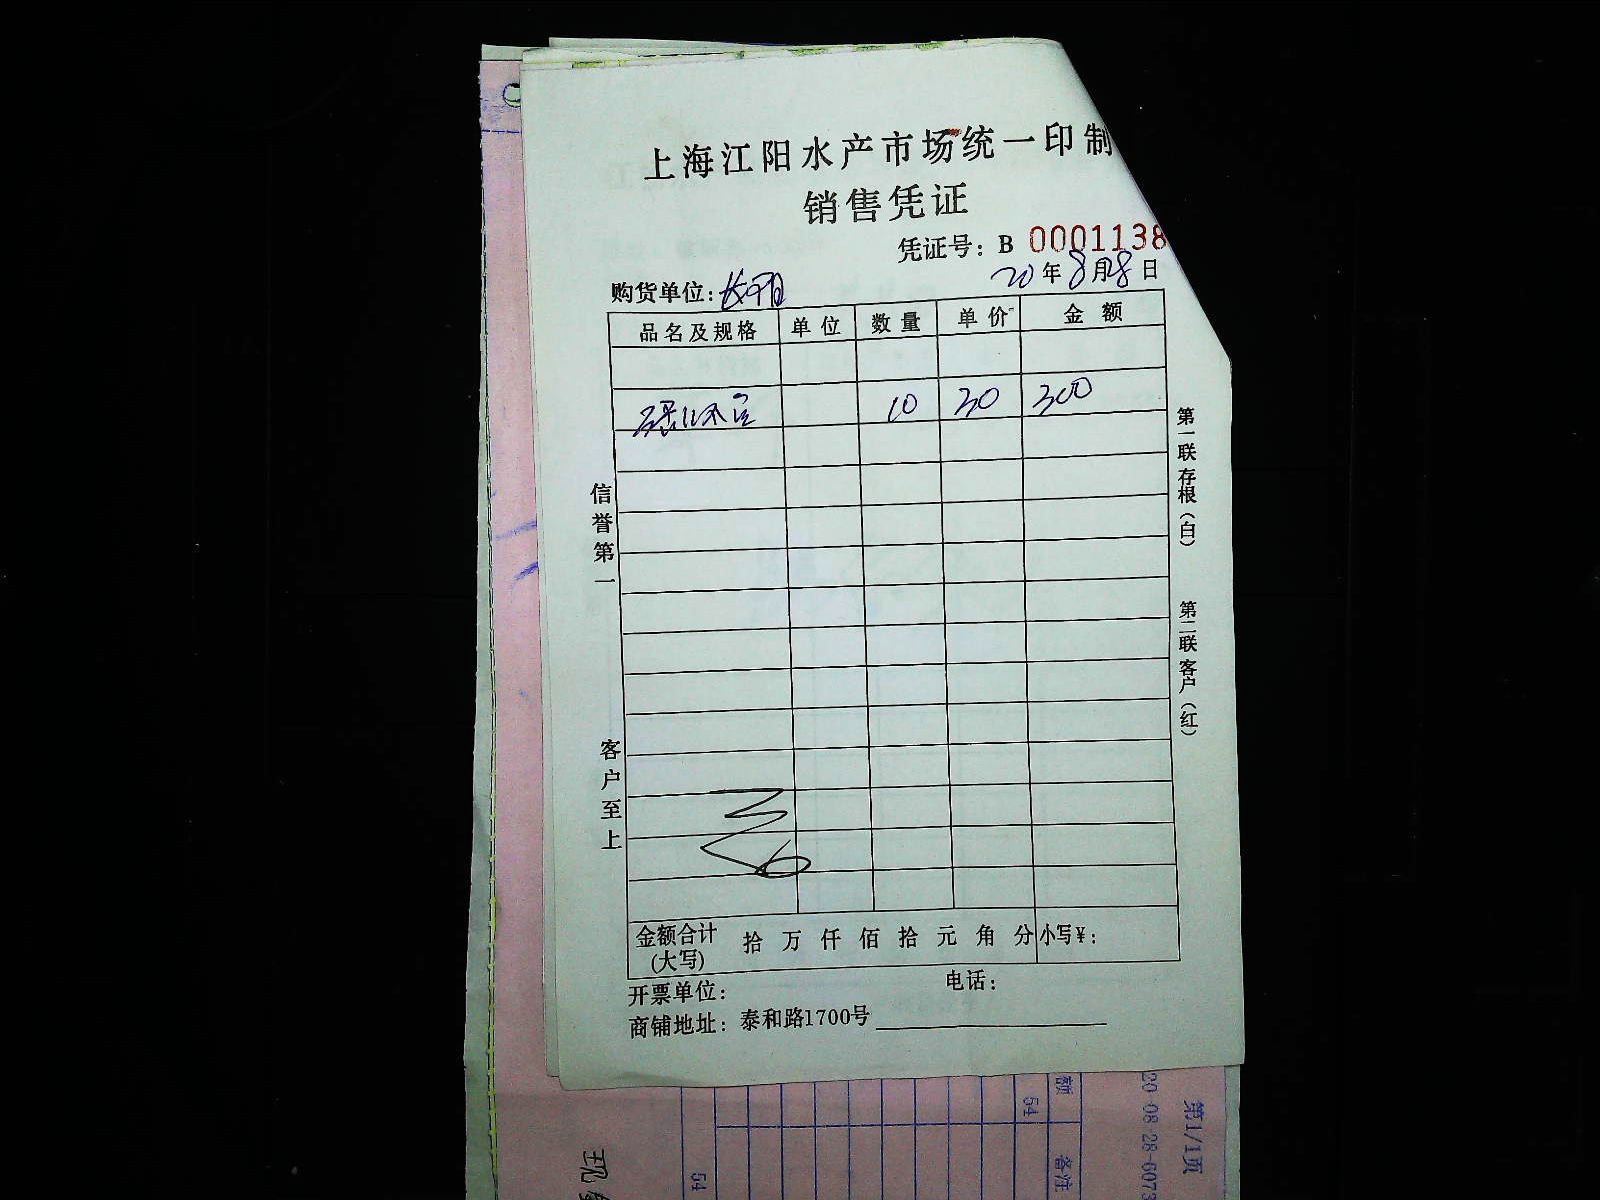 上海江阳水产市场统一印制
销售凭证
凭证号：B 0001138
20年8月28日
购货单位：
品名及规格 单位 数量 单价 金额
10 30 300
信誉第一
客户至上
第一联存根（白）
第二联客户（红）
金额合计（大写） 拾 万 仟 佰 拾 元 角 分 小写¥：
开票单位： 电话：
商铺地址：泰和路1700号
额
54
备注
54
20-08-28-6073
第1/1页